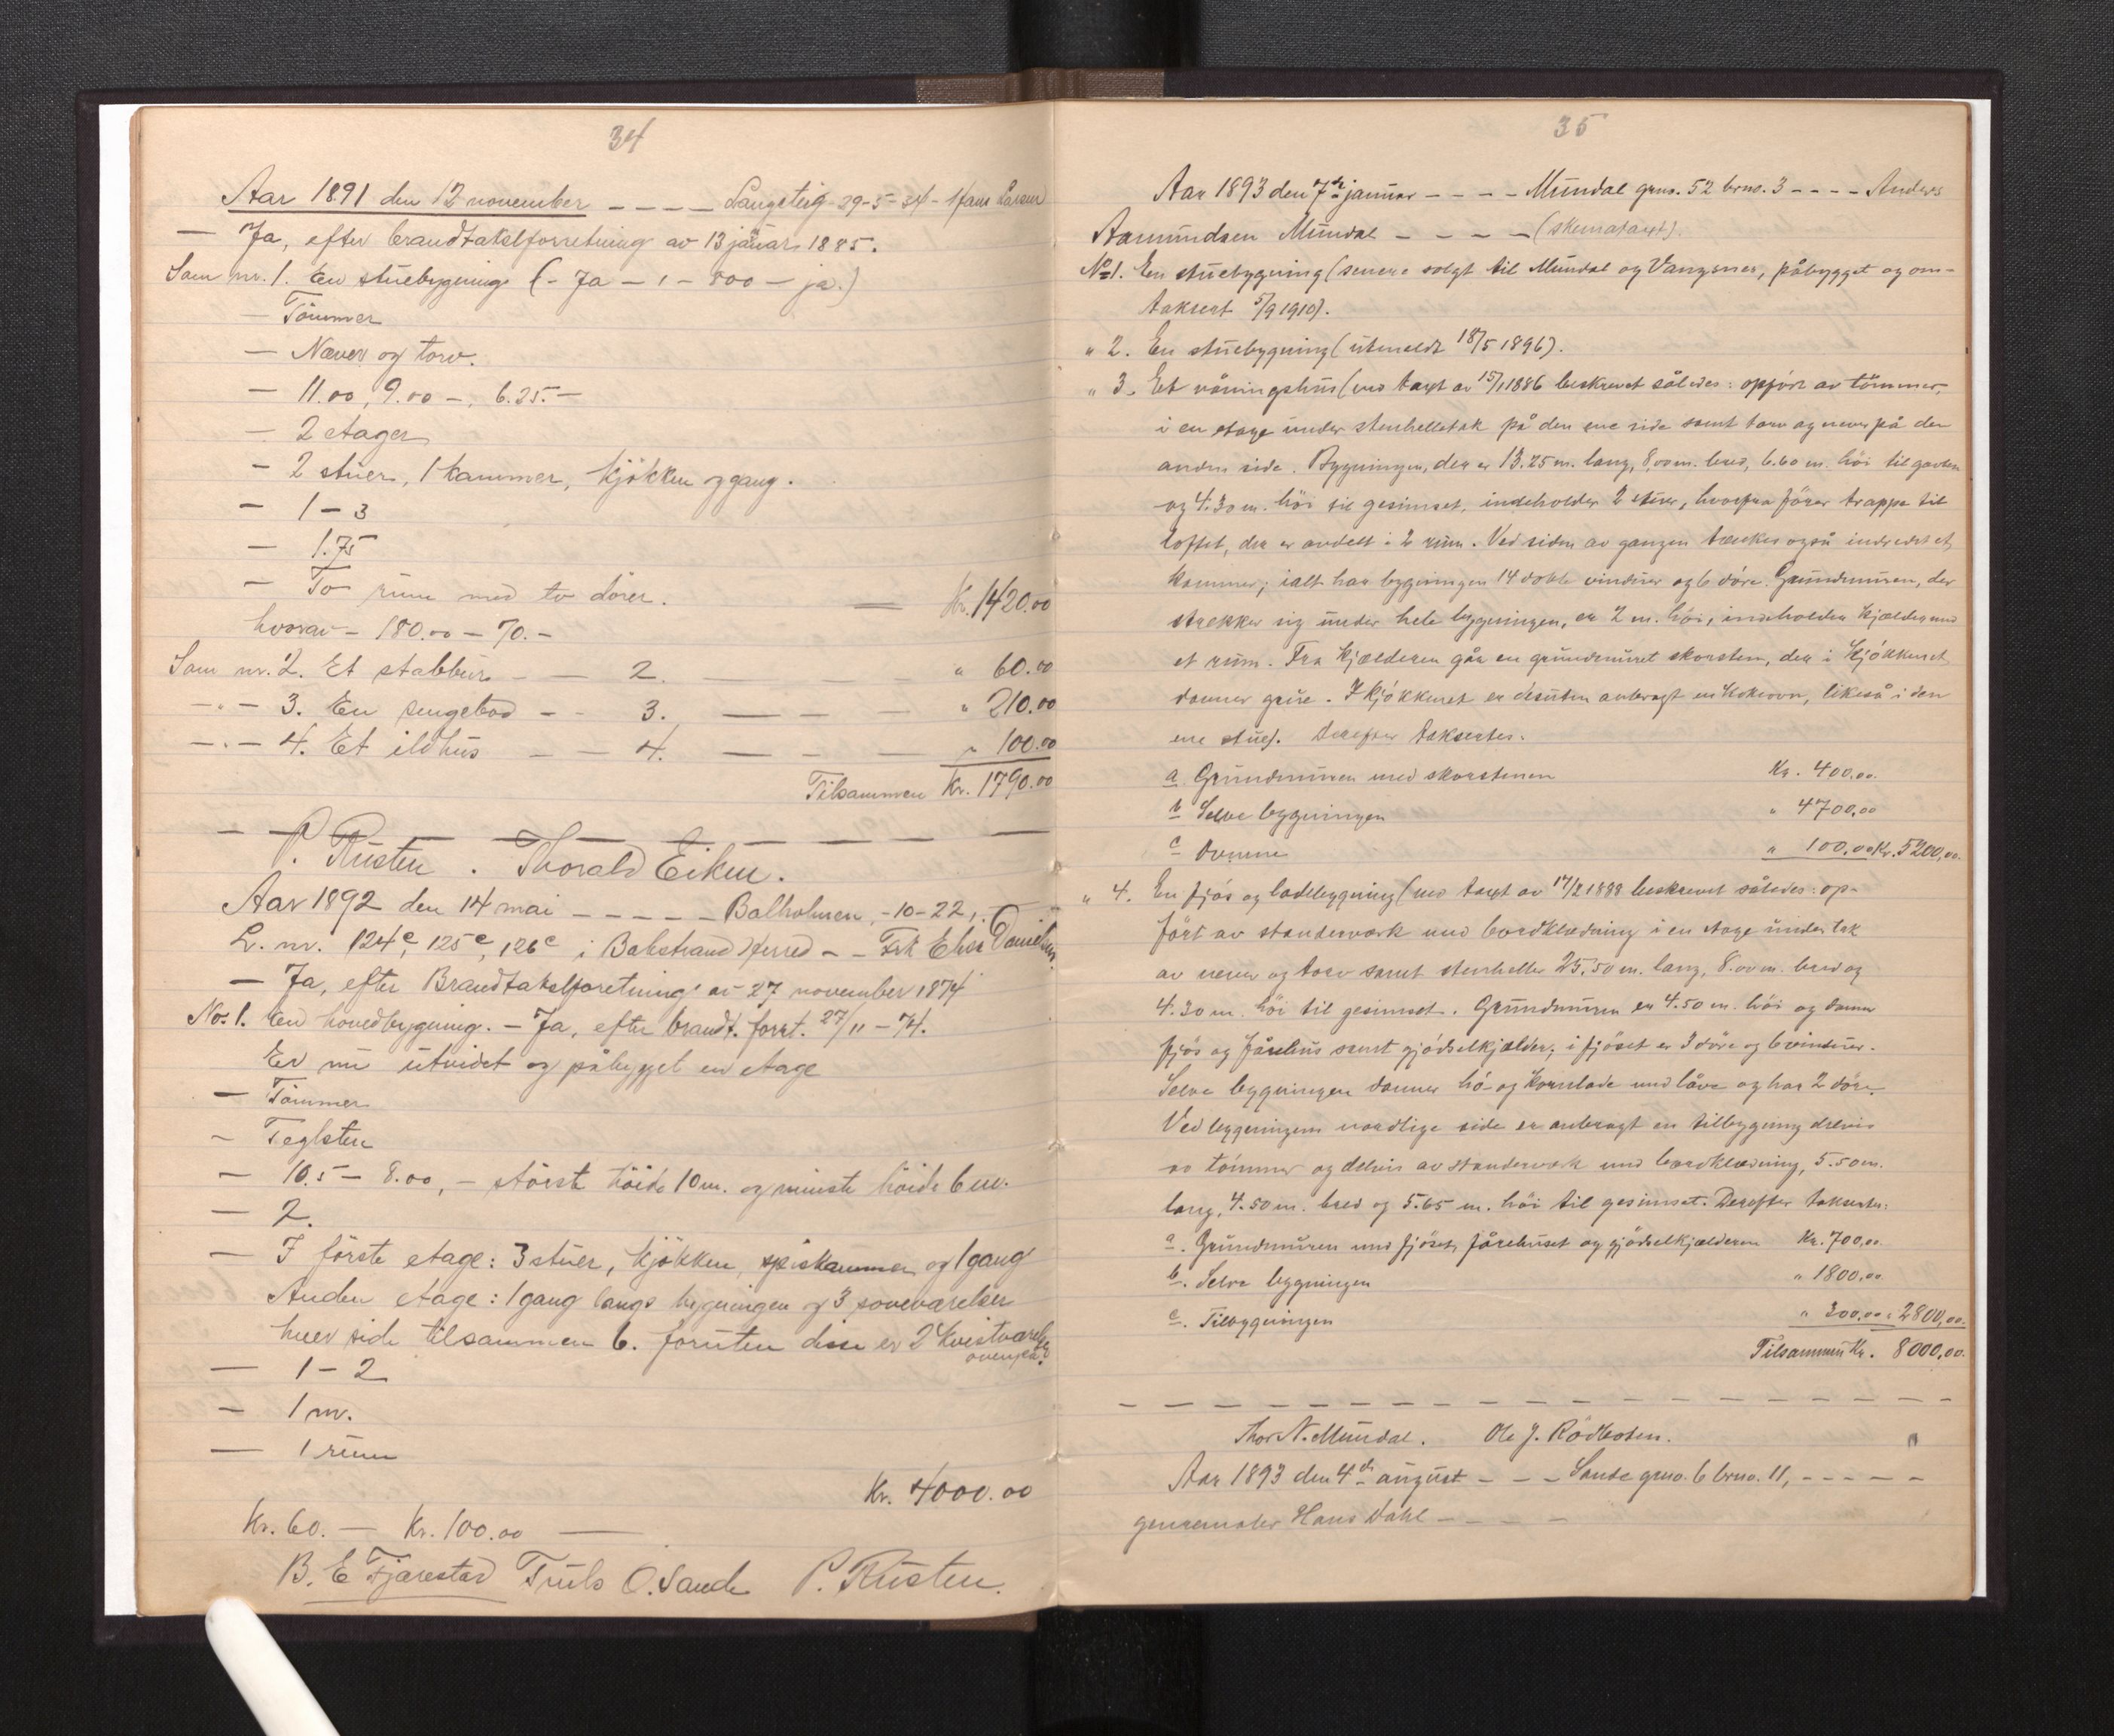 34
Aar 1891 den 12 november – – – – Langeteig - 29-5-34 - Hans Larsen
— Ja, efter brandtakstforretning av 13 januar 1885.
Som nr. 1. En stuebygning (- Ja – 1 – 800 – ja.)
— Tömmer
— Næver og torv.
— 11.00, 9.00 –, 6.25. –
— 2 etager
— 2 stuer, 1 kammer, kjökken og gang.
— 1 – 3
— 1.75
— To rum med to dörer. — Kr. 1420.00
hvorav – 180.00 – 70. –
Som nr. 2. Et stabbur – — 2. — — — " 60.00
–"– 3. En sengebod – – 3. — — — " 210.00
–"– 4. Et ildhus – — 4. — — — " 100.00
Tilsammen Kr. 1790.00
— — — — — — — —
P. Rusten . Thorald Eiken.
Aar 1892 den 14 mai – – – – – Balholmen, -10-22,
L. nr. 124c, 125c, 126c i Balestrand Herred – – Frk Danielsen
— Ja, efter Brandtakstforetning av 27 november 1874
No. 1. En hovedbygning. – Ja, efter brandt. forrt. 27/11 – 74.
Er nu utvidet og påbygget en etage
— Tömmer
– Teglsten
— 10.5 – 8.00, – störste höide 10 m. og minste höide 6 m.
— 2.
— I förste etage: 3 stuer, kjökken, spiskammer og 1 gang
Anden etage: 1 gang langs bygningen og 3 soveværelser
hver side tilsammen 6. foruten disse er 2 kvistværelser
ovenpå.
— 1 – 2
— 1 m.
— 1 rum
Kr. 4000.00
Kr. 60. — Kr. 100.00 —
B. E Fjærestad Truls O. Sande P. Rusten.
35
Aar 1893 den 7de januar – – – – Mundal grno. 52 brno. 3 – – – – Anders
Aamundsen Mundal – – – – (skematakst).
No 1. En stuebygning (senere solgt til Mundal og Vangsnes, påbygget og om-
taksert 5/9 1910).
" 2. En stuebygning (utmeldt 18/5 1896).
" 3. Et våningshus (ved takst av 15/1 1886 beskrevet således: opfört av tömmer,
i en etage under stenhelletak på den ene side samt torv og never på den
anden side. Bygningen, der er 13.25 m. lang, 8,00 m. bred, 6.60 m. höi til gavlen
og 4.30 m. höi til gesimset, indeholder 2 stuer, hvorfra förer trappe til
loftet, der er avdelt i 2 rum. Ved siden av gangen tænkes også indredet et
kammer; ialt har bygningen 14 doble vinduer og 6 döre. Grundmuren, der
strekker sig under hele bygningen, er 2 m. höi, indeholder kjælder med
et rum. Fra kjælderen går en grundmuret skorsten, der i kjökkenet
danner grue. I kjökkenet er desuten anbragt en kokeovn, likeså i den
ene stue). Derefter takseres.
a Grundmuren med skorstenen Kr. 400,00.
b Selve bygningen " 4700,00
c Ovnene " 100,00 Kr. 5200,00.
" 4. En fjös og ladebygning (ved takst av 17/2 1888 beskrevet således: op-
fört av standerværk med bordklædning i en etage under tak
av never og torv samt stenheller 25,50 m. lang, 8.00 m. bred og
4.30 m. höi til gesimset. Grundmuren er 4.50 m. höi og danner
fjös og fårehus samt gjödselkjælder; i fjöset er 3 döre og 6 vinduer.
Selve bygningen danner hö- og kornlade med låve og har 2 döre.
Ved bygningens nordlige side er anbragt en tilbygning delvis
av tömmer og delvis av standerværk med bordklædning, 5.50 m.
lang, 4.50 m. bred og 5.65 m. höi til gesimset. Derefter takseres:
a. Grundmuren med fjöset, fårehuset og gjödselkjælderen Kr. 700,00.
b. Selve bygningen " 1800,00
c. Tilbygningen " 300,00 " 2800,00.
Tilsammen Kr. 8000,00.
– – – – – – – – – – – – – – – – – –
Thor N. Mundal. Ole J. Rödbotten.
Aar 1893 den 4de august – – – Sande grno. 6 brno. 11, – – – – –
genremaler Hans Dahl – – – –